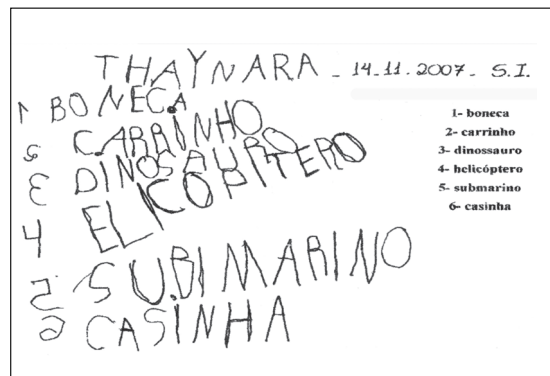 THAYNARA - 14.11.2007- S.I.
1 BONECA
2 CARRINHO
3 DINOSAURO
4 ELICOPITERO
5 SUBIMARINO
6 CASINHA
1- boneca
2- carrinho
3- dinossauro
4- helicóptero
5- submarino
6- casinha